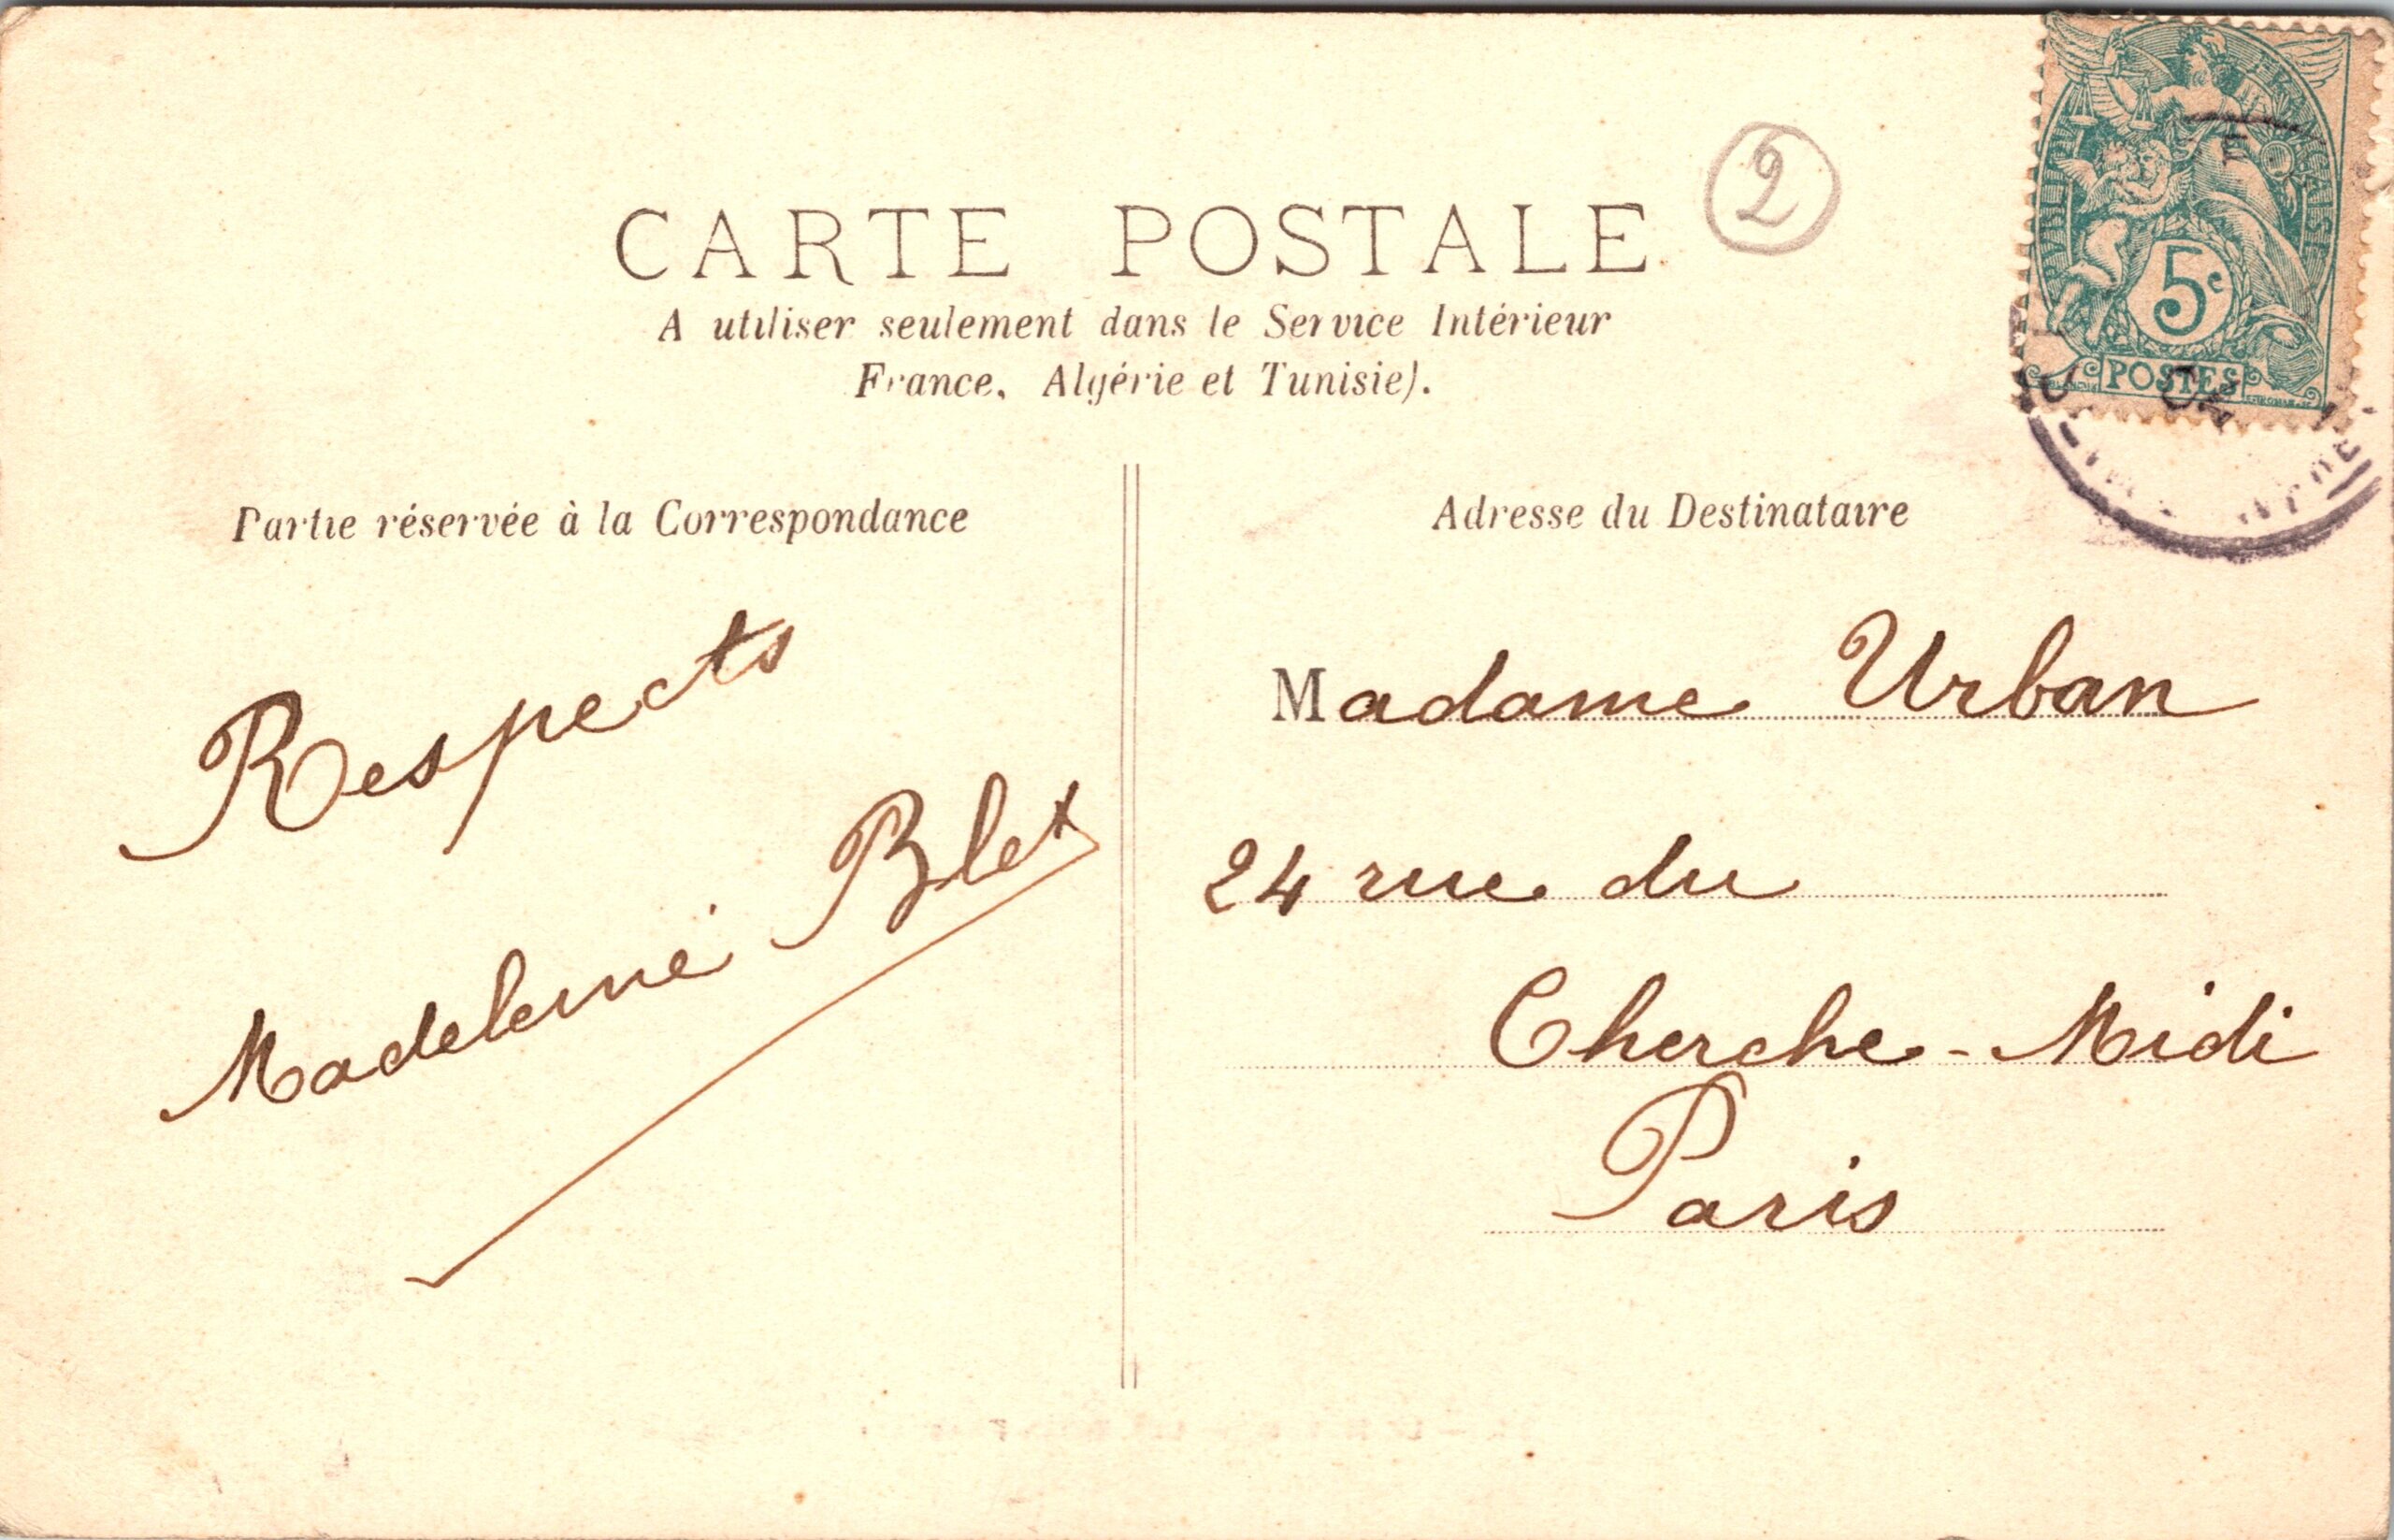 CARTE POSTALE
2
A utiliser seulement dans le Service Intérieur
France, Algérie et Tunisie).
Partie réservée à la Correspondance
Adresse du Destinataire
Respects
Madeleine Blet
Madame Urban
24 rue du
Cherche-Midi
Paris
REPUBLIQUE FRANÇAISE
5c
POSTES